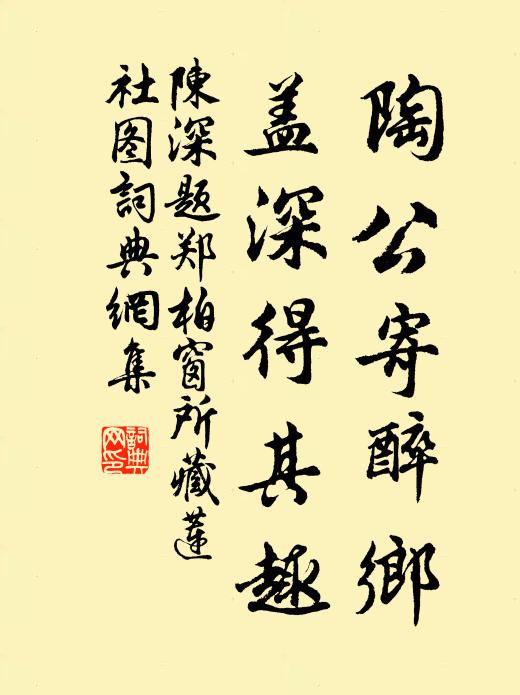 陶公寄醉鄉
盖深得其趣
陳深题郑柏窗所藏蓮
社图詞典網集
詞典
网印